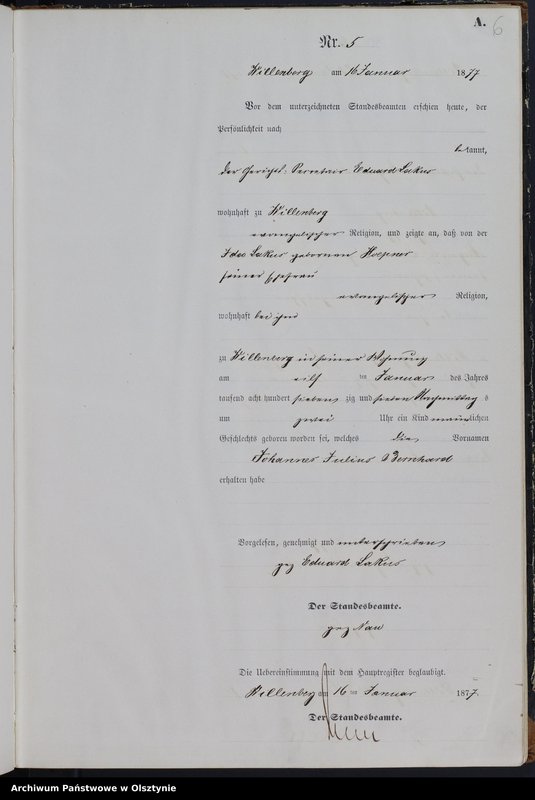 A.
6
Nr. 5
Willenberg am 16 Januar 1877
Vor dem unterzeichneten Standesbeamten erschien heute, der
Persönlichkeit nach
bekannt,
der Gerichts Secretair Eduard Lakus
wohnhaft zu Willenberg
evangelischer Religion, und zeigte an, daß von der
Ida Lakus gebornen Hoepner
seiner Ehefrau
evangelischer Religion,
wohnhaft bei ihm
zu Willenberg in seiner Wohnung
am eilf ten Januar des Jahres
tausend acht hundert sieben zig und sieben Nachmittag s
um zwei Uhr ein Kind männlichen
Geschlechts geboren worden sei, welches die Vornamen
Johannes Julius Bernhard
erhalten habe
Vorgelesen, genehmigt und unterschrieben
gez Eduard Lakus
Der Standesbeamte.
gez Nau
Die Uebereinstimmung mit dem Hauptregister beglaubigt.
Willenberg am 16 ten Januar 1877.
Der Standesbeamte.
Archiwum Państwowe w Olsztynie